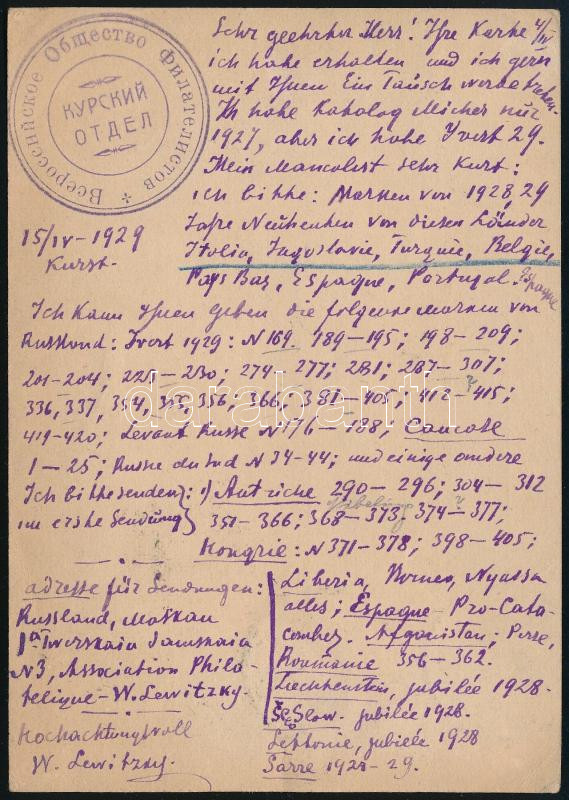 Всероссийское Общество Филателистов
КУРСКИЙ
ОТДЕЛ
Sehr geehrter Herr! Ihre Karte 4/IV
ich habe erhalten und ich gern
mit Ihnen Ein Tausch werde
Ich habe Katalog Michel nur
1927, aber ich habe Yvert 29.
Mein Mancolist sehr Kurt:
ich bitte: Marken von 1928, 29
Jahre Neuheiten von diesen Länder
Italia, Jugoslavie, Turquie, Belgie,
Pays Bas, Espagne, Portugal. Espagne
15/IV-1929
Kursk.
Ich Kann Ihnen geben die folgende Marken von
Russland: Yvert 1929: N 169. 189-195; 198-209;
201-204; 225-230; 274-277; 281; 287-307;
336, 337, 354, 355, 356; 366; 381-405; 412-415;
419-420; Levant Russe N 176-188; Caucase
1-25; Russe du Sud N 34-44; und einige andere
Ich bitte senden: 1) Autriche 290-296; 304-312
im erste Sendung} 351-366; 368-373; 374-377;
Hongrie: N 371-378; 398-405;
adresse für Sendungen:
Russland, Moskau
1a Twerskaia Jamskaia
N3, Association Phila-
telique-W. Lewitzky.
Hochachtungsvoll
W. Lewitzky.
Liberia, Borneo, Nyassa
alles; Espagne-Pro-Cata-
combes. Afganistan; Perse,
Roumanie 356-362.
Liechtenstein, jubilée 1928.
Slow. jubilée 1928.
Lettonie, jubilée 1928
Sarre 1927-29.
darabanth